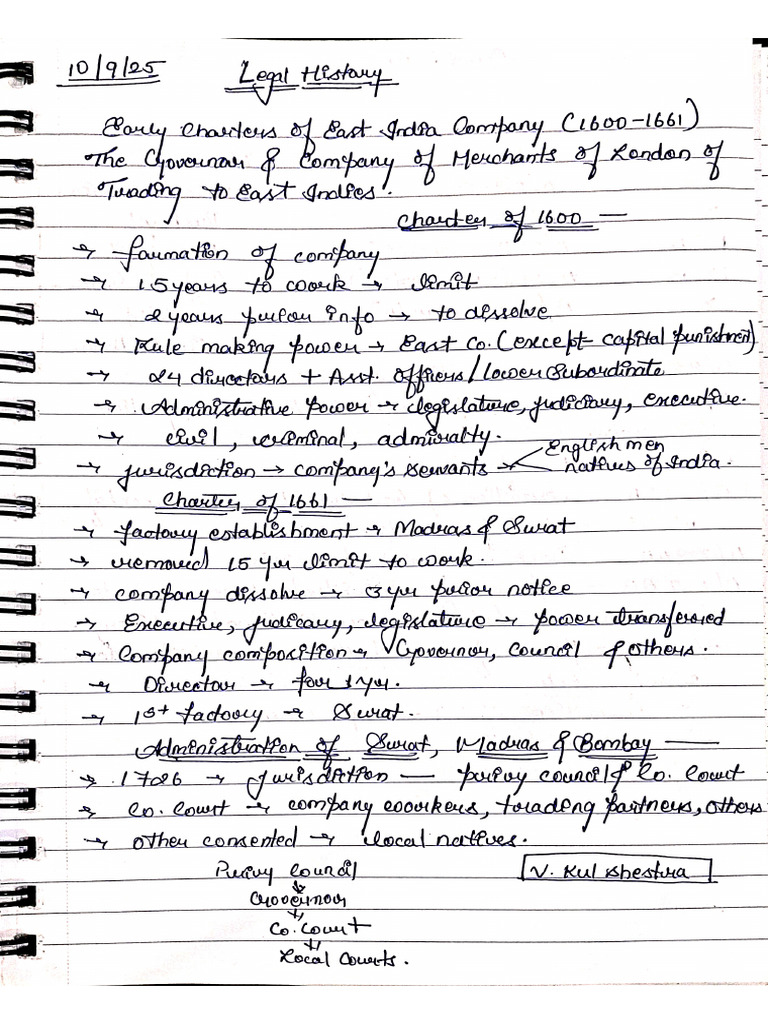 10/9/25 Legal History
Early Charters of East India Company (1600-1661)
The Governor & Company of Merchants of London of
Trading to East Indies.
Charter of 1600 —
→ formation of company
→ 15 years to work → limit
→ 2 years prior info → to dissolve
→ Rule making power → East Co. (except capital punishment)
→ 24 directors + Asst. Officers/Lower Subordinate
→ Administrative power → legislature, judiciary, executive.
→ civil, criminal, admiralty.
→ jurisdiction → company's servants → Englishmen
natives of India.
Charter of 1661 —
→ factory establishment → Madras & Surat
→ removed 15 yr limit to work.
→ company dissolve → 3 yr prior notice
→ Executive, judicary, legislature → power transferred
→ Company composition → Governor, council & others.
→ Director → for 1 yr.
→ 1st factory → Surat.
Administration of Surat, Madras & Bombay —
→ 1726 → jurisdiction — privy council & Co. Court
→ Co. Court → company workers, trading partners, others
→ other consented → local natives.
Privy Council
↓
Governor
↓
Co. Court
↓
Local Courts.
N. Kul Khestra